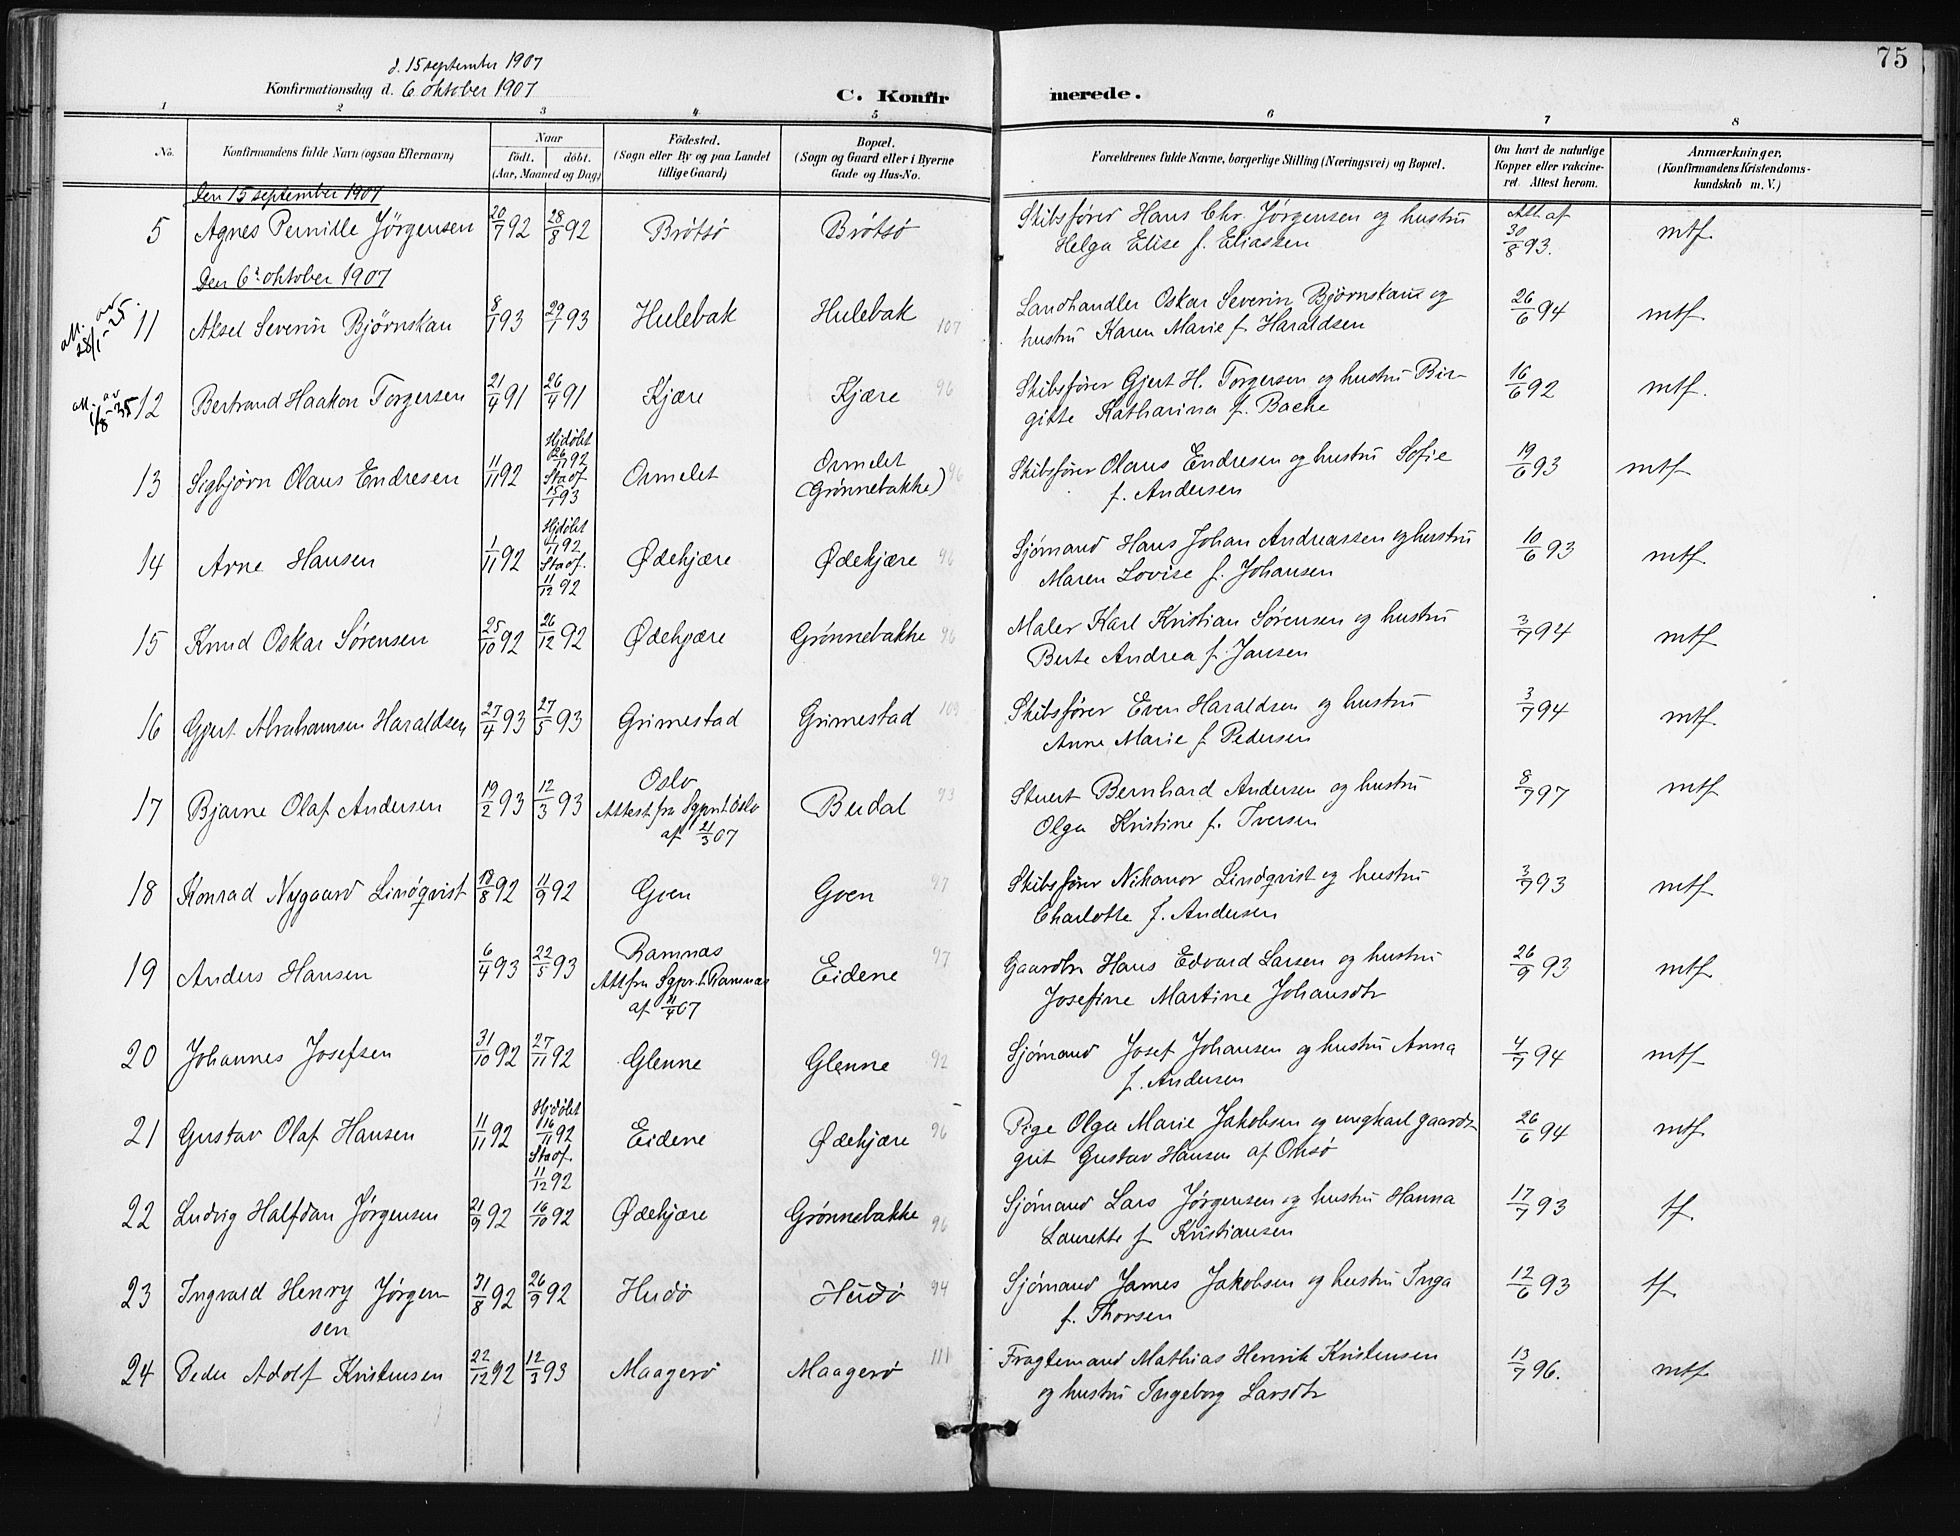 75
d. 15 september 1907
Konfirmationsdag d. 6 oktober 1907
C. Konfirmerede.
1 2 3 4 5 6 7 8
No.
Konfirmandens fulde Navn (ogsaa Efternavn)
Naar
födt. döbt.
(Aar, Maaned og Dag)
Födested.
(Sogn eller By og paa Landet
tillige Gaard)
Bopæl.
(Sogn og Gaard eller i Byerne
Gade og Hus-No.
Forældrenes fulde Navne, borgerlige Stilling (Næringsvei) og Bopæl.
Om havt de naturlige
Kopper eller vakcine-
ret Attest herom.
Anmærkninger.
(Konfirmandens Kristendoms-
kundskab m. V.)
Den 15 september 1907
5 Agnes Pernille Jörgensen 20/7 92 28/8 92 Brötsö Brötsö Skibsfører Hans Chr. Jörgensen og hustru Att. af mtf.
Helga Elise f. Eliassen 30/8 93.
Den 6te oktober 1907
att. av 28/1-25. 11 Aksel Severin Bjørnskau 8/1 93 29/1 93 Hulebak Hulebak 107 Landhandler Oskar Severin Bjørnskau og 26/6 94 mtf.
hustru Karen Marie f. Haraldsen
att. av 1/8-35 12 Bertrand Haakon Torgersen 21/4 91 26/4 91 Kjære Kjære 96 Skibsfører Gjert H. Torgersen og hustru Bir- 16/6 92 mtf.
gitte Katharina f. Bache
13 Sigbjørn Olaus Endresen 11/11 92 Hjdöbt 26/11 92 Stadf. 15/1 93 Ormelet Ormelet (Grønnebakke) 96 Skibsfører Olaus Endresen og hustru Sofie 19/6 93 mtf
f. Andersen
14 Arne Hansen 1/11 92 Hjdöbt 1/11 92 Stadf. 11/12 92 Ødekjære Ødekjære 96 Sjömand Hans Johan Andreassen og hustru 10/6 93 mtf.
Maren Lovise f. Johansen
15 Knud Oskar Sørensen 25/10 92 26/12 92 Ødekjære Grønnebakke 96 Maler Karl Kristian Sørensen og hustru 3/7 94 mtf
Berte Andrea f. Jansen
16 Gjert Abrahamsen Haraldsen 27/4 93 27/5 93 Grimestad Grimestad 109 Skibsfører Even Haraldsen og hustru 3/7 94 mtf
Anne Marie f. Pedersen
17 Bjarne Olaf Andersen 19/2 93 12/3 93 Oslo Attest fra Sgprt. i Oslo af 21/3 07 Budal 93 Stuert Bernhard Andersen og hustru 8/7 97 mtf
Olga Kristine f. Iversen
18 Konrad Nygaard Lindqvist 18/8 92 11/9 92 Goen Goen 97 Skibsfører Nikanor Lindqvist og hustru 3/7 93 mtf
Charlotte f. Andersen
19 Anders Hansen 6/4 93 22/5 93 Ramnæs Att fra Sgprt. i Ramnæs af 11/4 07 Eidene 97 Gaardbr Hans Edvard Larsen og hustru 26/9 93 mtf
Josefine Martine Johansdtr
20 Johannes Josefsen 31/10 92 27/11 92 Glenne Glenne 92 Sjömand Josef Johansen og hustru Anna 4/7 94 mtf
f. Andersen
21 Gustav Olaf Hansen 11/11 92 Hjdöbt 16/11 92 Stadf. 11/12 92 Eidene Ødekjære 96 Pige Olga Marie Jakobsen og ungkarl gaardr- 26/6 94 mtf
gut Gustav Hansen af Onsö
22 Ludvig Halfdan Jörgensen 21/9 92 16/10 92 Ødekjære Grønnebakke 96 Sjömand Lars Jörgensen og hustru Hanna 17/7 93 tf.
Laurette f Kristiansen
23 Ingvald Henry Jörgen- 31/8 92 26/9 92 Hudö Hudö 94 Sjömand James Jakobsen og hustru Inga 12/6 93 tf.
sen f. Thorsen
24 Peder Adolf Kristensen 22/12 92 12/3 93 Maagerö Maagerö 111 Fragtemand Mathias Henrik Kristensen 13/7 96. mtf
og hustru Ingeborg Larsdtr